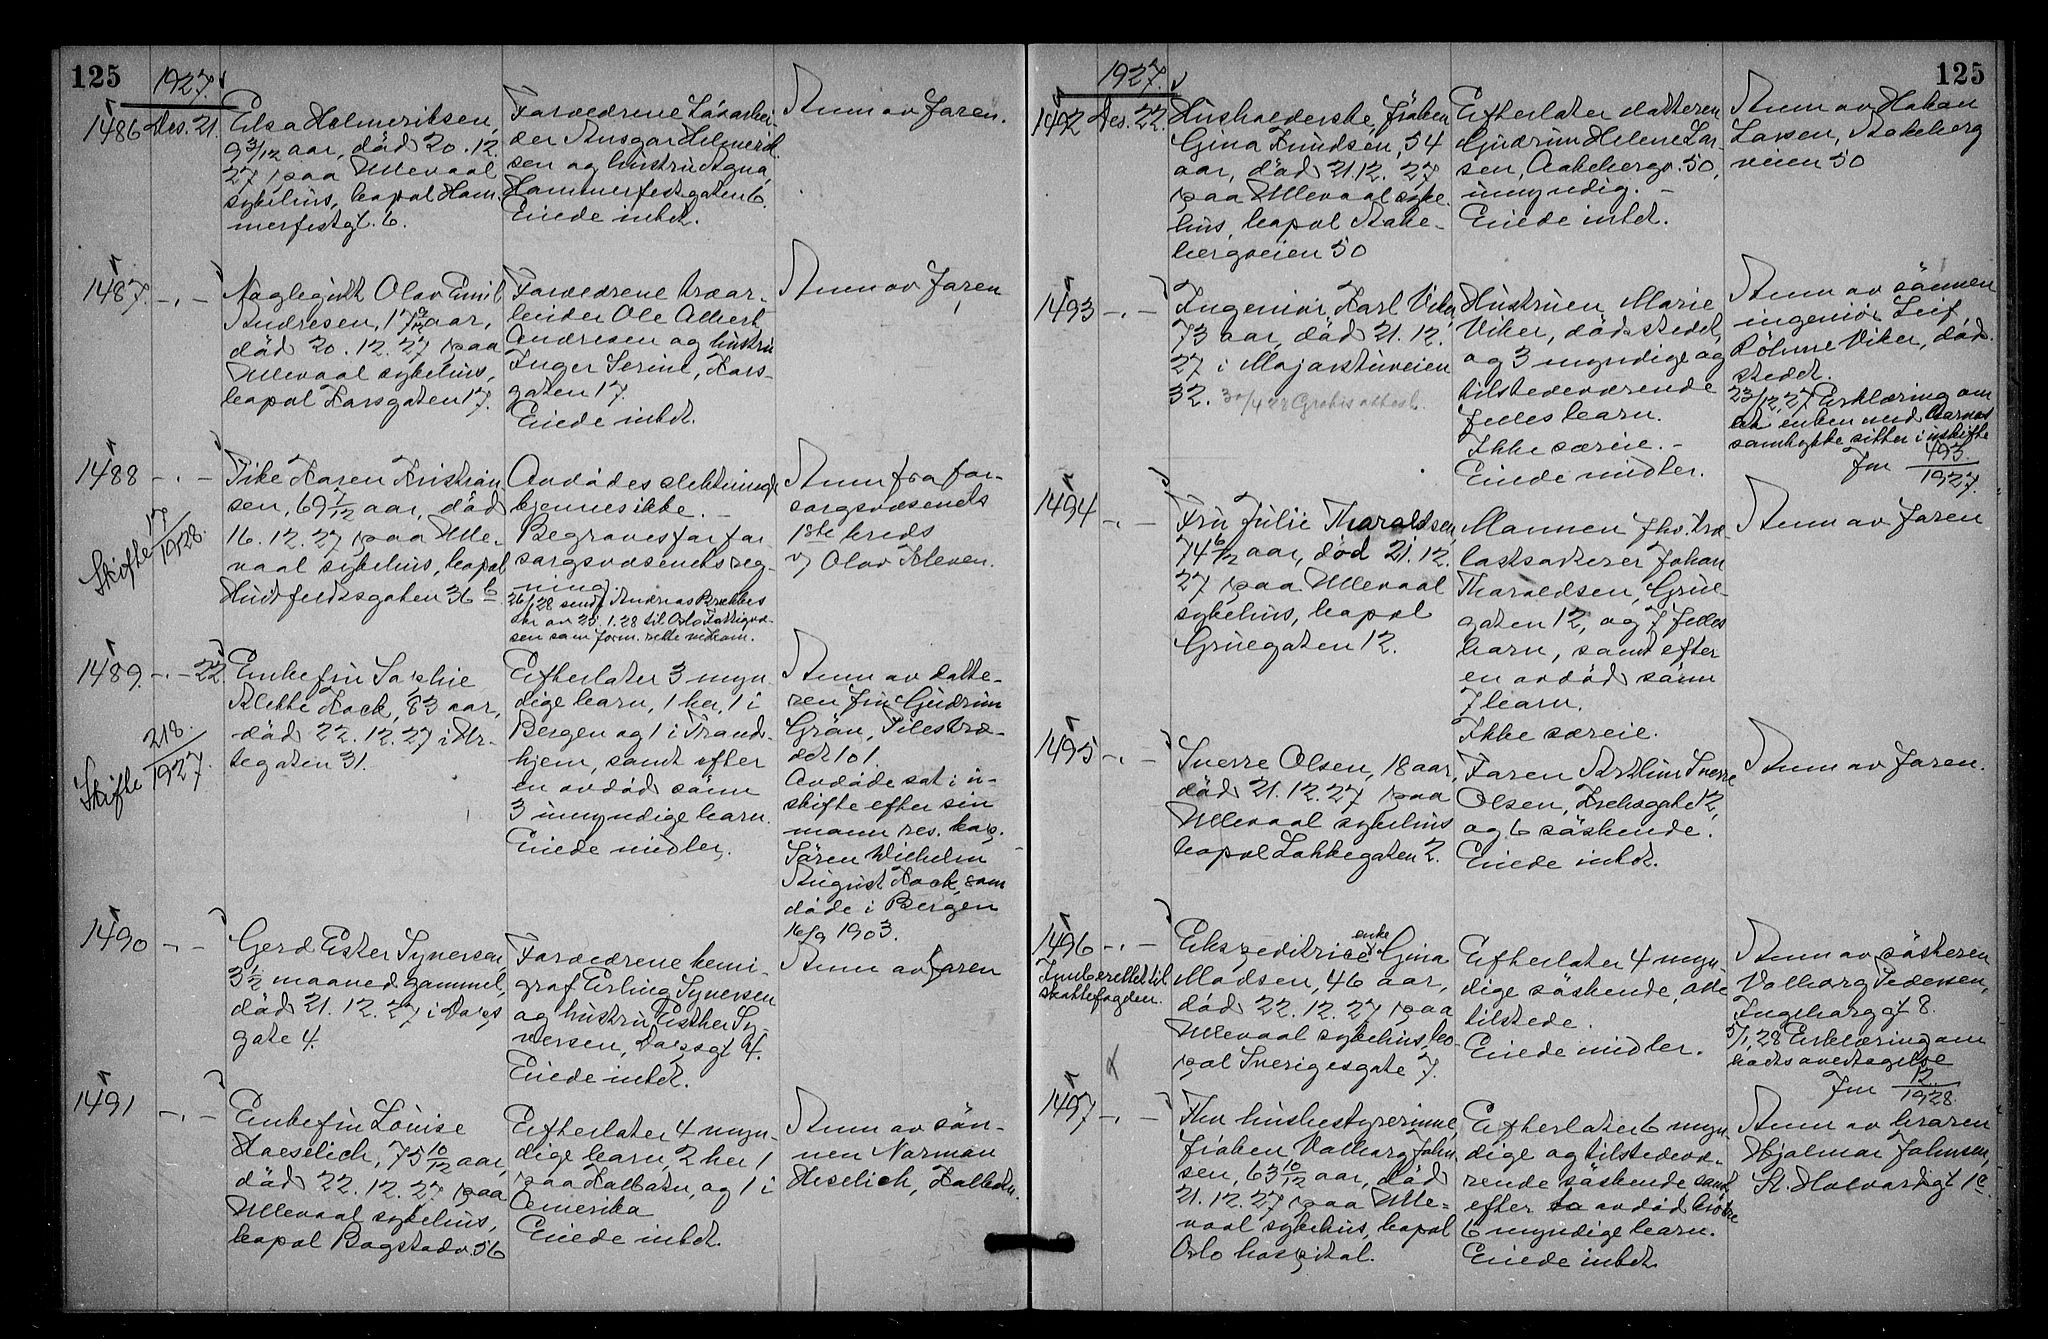 125
1927.
1486 Des. 21.
Elsa Helmeriksen,
9 3/12 aar, död 20.12.
27 paa Ullevaal
sykehus, bopæl Ham-
merfestgt. 6.
Forældrene Lösarbei-
der Ansgar Helmerik-
sen og hustru Agna,
Hammerfestgaten 6.
Eiede intet.
Anm av Faren.
1487. -"-
Naglegutt Olav Emil
Andresen, 17 aar,
död 20.12.27 paa
Ullevaal sykehus,
bopæl Korsgaten 17.
Forældrene træar-
beider Ole Albert
Andresen og hustru
Inger Serine, Kors-
gaten 17.
Eiede intet.
Anm av Faren
1488 -"-
Skifte 17/1928.
Pike Karen Kristian
sen, 69 7/12 aar, död
16.12.27 paa Ulle-
vaal sykehus, bopæl
Huitfeldtsgaten 36 b
Avdödes slektninger
kjennes ikke. -
Begraves for for
sorgsvæsenets reg-
ning
26/1 28 sendt Andreas Brækkes
skr av 25.1.28 til Oslo Fattigvæ-
sen som form. rette vedkom.
Anm fra for-
sorgsvæsenets
1ste kreds
v/ Olav Kleven.
1489. -"- 22.
Skifte 218./1927.
Enkefru Sophie
Klette Kock, 83 aar,
död 22.12.27 i Ur-
tegaten 31.
Efterlater 3 myn
dige barn, 1 her, 1 i
Bergen og 1 i Trond-
hjem, samt efter
en avdöd sönn
3 umyndige barn.
Eiede midler.
Anm av datte-
ren fru Gudrun
Grön, Pilestræ-
det 101.
Avdöde sat i u-
skifte efter sin
mann res. kap.
Sören Wilhelm
August Kock, som
döde i Bergen
16/9 1903.
1490 -"-
Gerd Ester Syversen
3 1/2 maaned gammel,
död 21.12.27 i Daas
gate 4.
Forældrene kemi-
graf Erling Syversen
og hustru Esther Sy-
versen, Daasgt 4.
Eiede intet.
Anm av Faren
1491 -"-
Enkefru Louise
Haeselich, 75 10/12 aar,
död 22.12.27 paa
Ullevaal sykehus,
bopæl Bogstadv. 56
Efterlater 4 myn-
dige barn, 2 her 1
paa Kolbotn, og 1 i
Amerika
Eiede intet.
Anm av sön-
nen Norman
Heselich, Kolbotn.
125
1927.
1492 Des. 22.
Husholderske, fröken
Gina Knudsen, 54
aar, död 21.12.27
paa Ullevaal syke-
hus, bopæl Aake-
bergveien 50
Efterlater datteren
Gudrun Helene Lar
sen, Aakebergv. 50,
umyndig. -
Eiede intet.
Anm av Håkon
Larsen, Aakeberg
veien 50
1493 -"-
Ingeniör, Karl Viker,
73 aar, död 21.12.
27 i Majorstuveien
32. 30/4 28 Gratis attest.
Hustruen Marie
Viker, dödsstedet,
og 3 myndige og
tilstedeværende
felles barn.
Ikke særeie. -
Eiede midler.
Anm av sönnen
ingeniör Leif
Röhme Viker, död-
stedet.
23/12.27 Erklæring om
at enken med barnas
samtykke sitter i uskifte
Jnr 493/1927.
1494 -"-
Fru Julie Tharaldsen
74 6/12 aar, död 21.12.
27 paa Ullevaal
sykehus, bopæl
Gruegaten 12.
Mannen fhv. træ
lastsorterer Johan
Tharaldsen, Grue-
gaten 12, og 7 felles
barn, samt efter
en avdöd sönn
7 barn.
Ikke særeie.
Anm av Faren
1495 -"-
Sverre Olsen, 18 aar,
död 21.12.27 paa
Ullevaal sykehus
bopæl Lakkegaten 2.
Faren Arthur Sverre
Olsen, Krebsgate 12,
og 6 söskende.
Eiede intet.
Anm av Faren.
1496 -"-
Innberettet til
skattefogden.
Ekspeditrice enke Gina
Madsen, 46 aar,
död 22.12.27 paa
Ullevaal sykehus, bo-
pæl Sverigesgate 7.
Efterlater 4 myn-
dige söskende, alle
tilstede.
Eiede midler.
Anm av sösteren
Valborg Pedersen,
Ingeborggt 8.
5/1.28 Erklæring om
boets overtagelse
Jnr 12/1928.
1497 -"-
Fhv husbestyrerinne,
fröken Valborg John
sen, 63 10/12 aar, död
21.12.27 paa Ulle-
vaal sykehus, bopæl
Oslo hospital.
Efterlater 6 myn-
dige og tilstedevæ-
rende söskende samt
efter to avdöd bröre
6 myndige barn.
Eiede intet
Anm av broren
Hjalmar Johnsen,
St. Halvardsgt 1c.